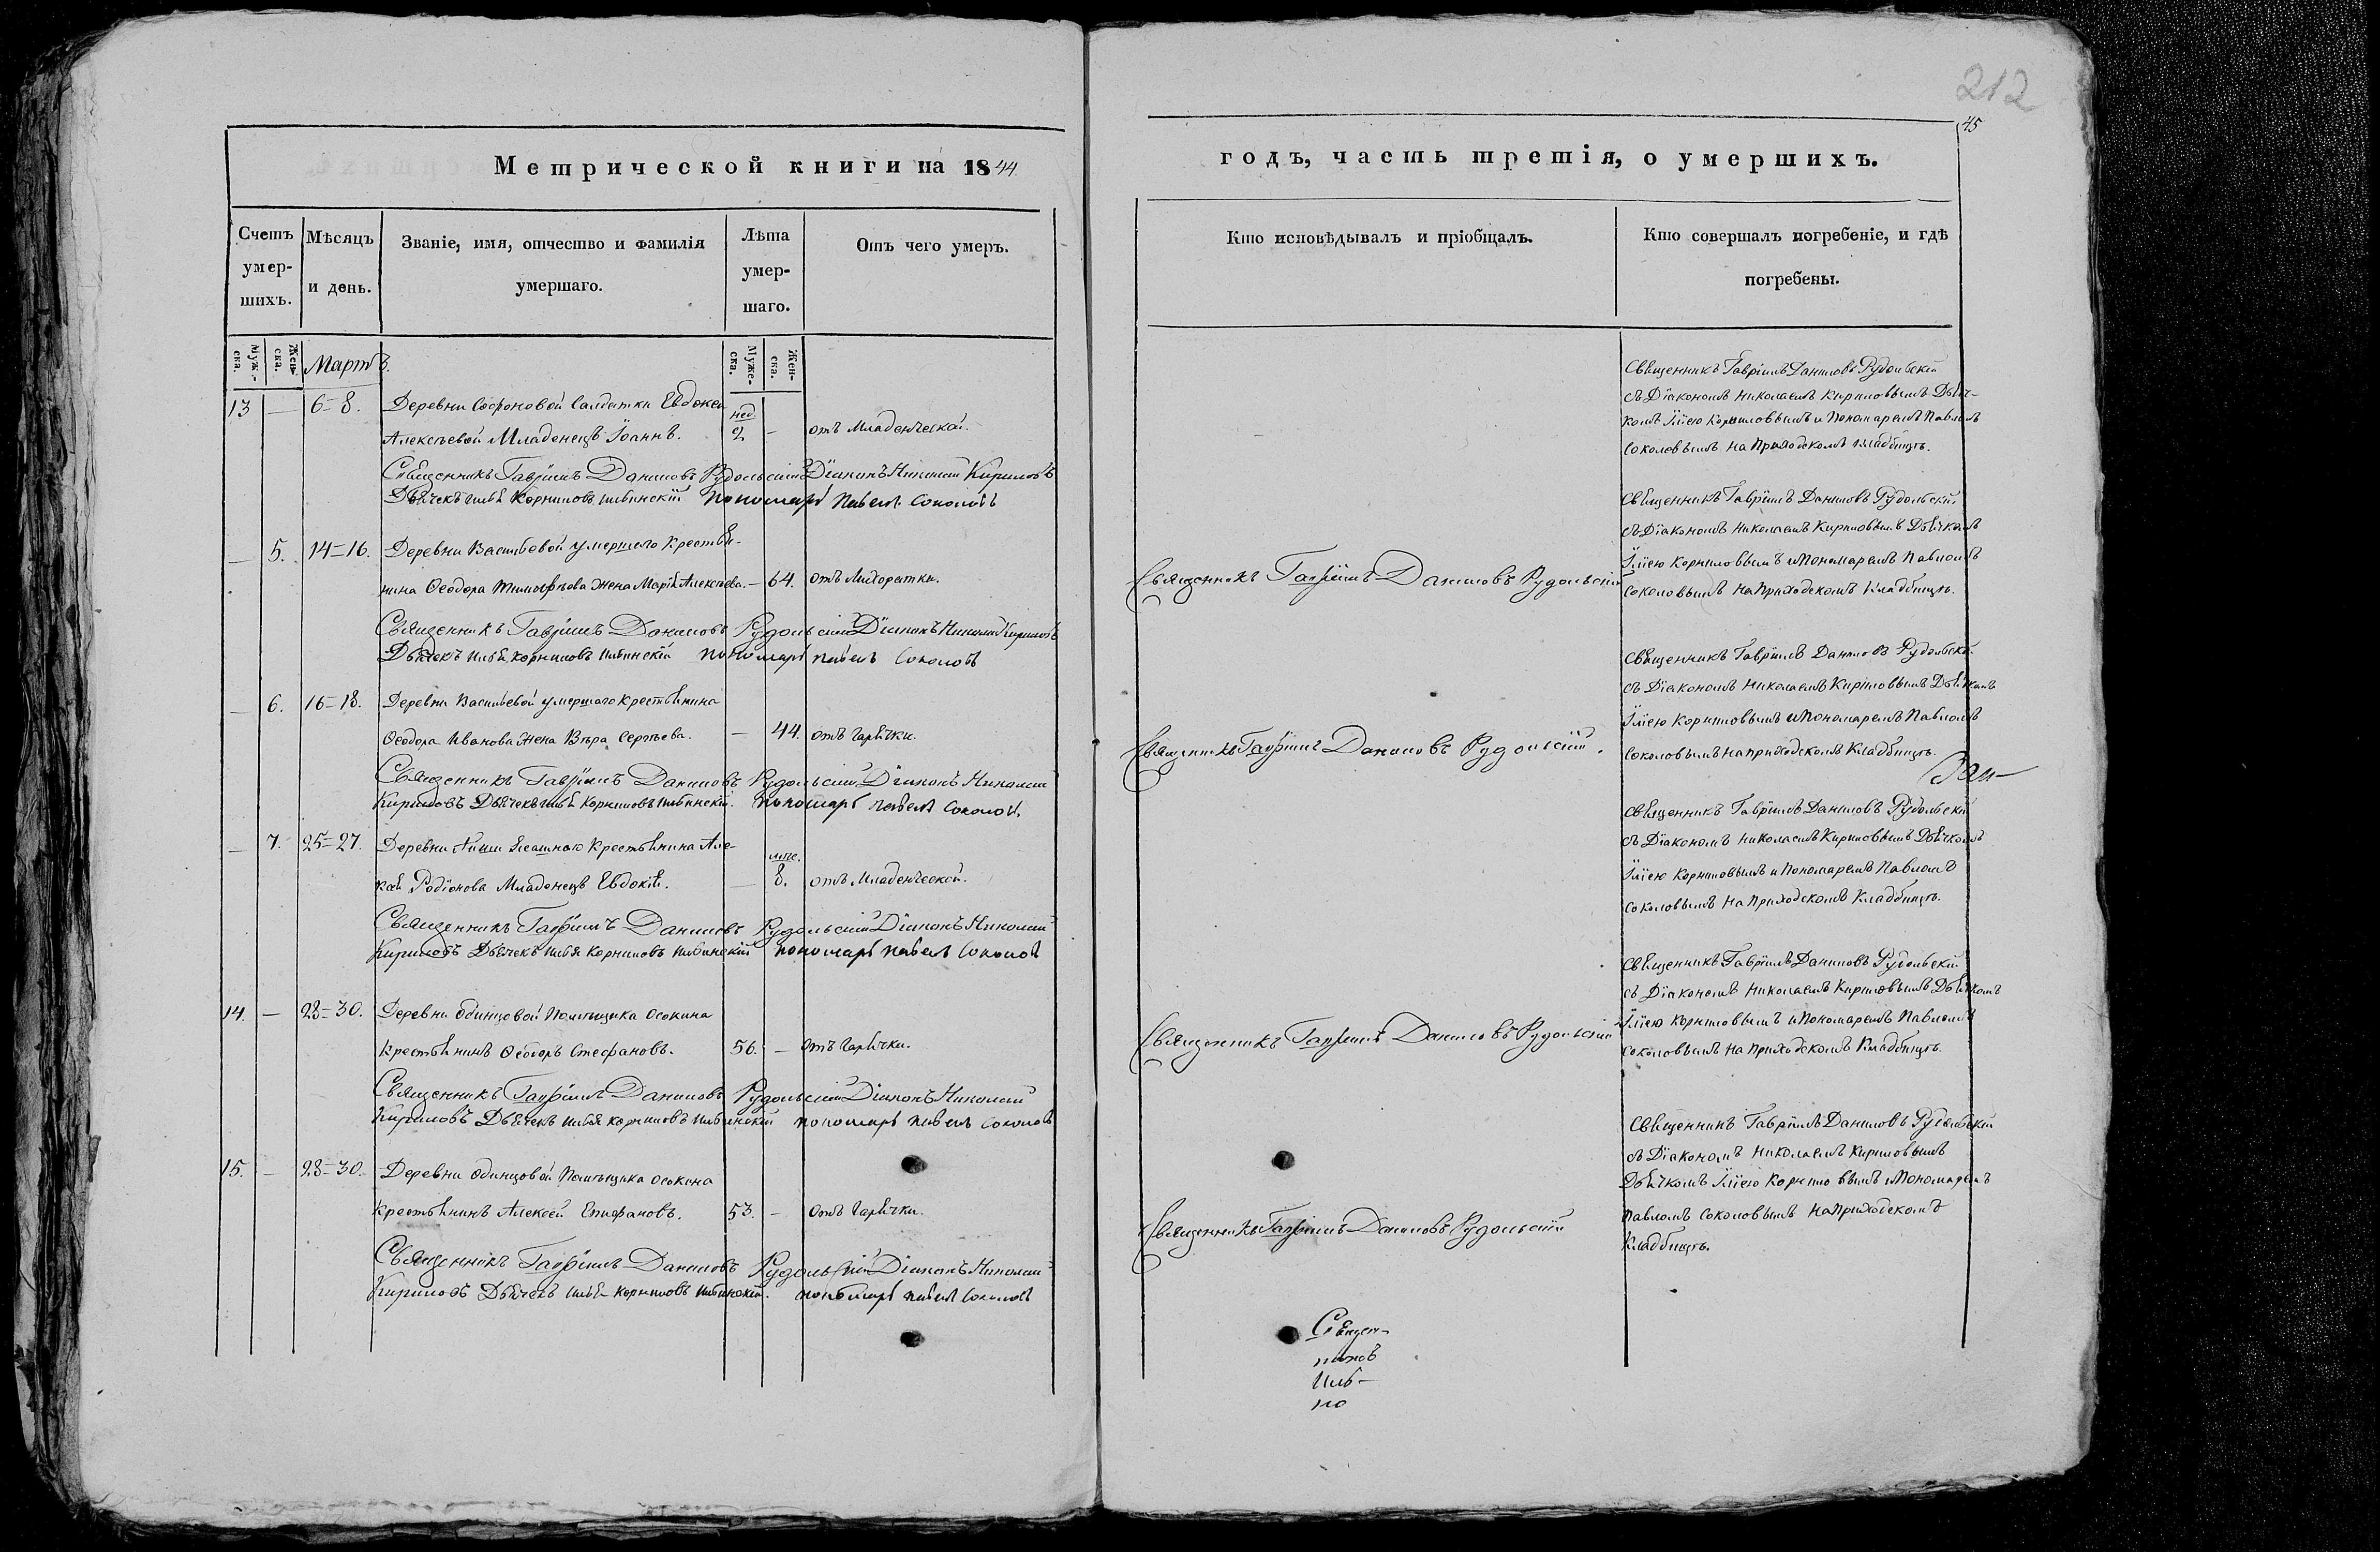 212
45
Метрической книги на 1844
годъ, часть третія, о умершихъ.
Счетъ умер-шихъ.
Мѣсяцъ и день.
Званіе, имя, отчество и фамилія умершаго.
Лѣта умер-шаго.
Отъ чего умеръ.
Кто исповѣдывалъ и пріобщалъ.
Кто совершалъ погребеніе, и гдѣ погребены.
Муже-ска.
Жен-ска.
Мартъ.
Муже-ска.
Жен-ска.
13 — 6=8. Деревни Софоновой Салдатки Евдокеи
Алексѣевой Младенецъ Іоаннъ. нед. 2 — отъ Младенческой.
Священникъ Гавріилъ Даниловъ Рудольскій Діаконъ Николай Кириловъ
Дьячекъ Илья Корниловъ Ильинскій пономарь Павелъ Соколовъ
Священникъ Гавріилъ Даниловъ Рудольскій
съ Діакономъ Николаемъ Кириловымъ Дьяч-
комъ Иліею Корниловымъ и Пономаремъ Павломъ
Соколовымъ на Приходскомъ кладбищѣ.
— 5. 14=16. Деревни Васильевой умершего крестья-
нина Ѳеодора Тимоѳѣева жена Марія Алексѣева. — 64. отъ Лихорадки.
Священникъ Гавріилъ Даниловъ Рудольскій Діаконъ Николай Кириловъ
Дьячекъ Илья Корниловъ Ильинскій пономарь Павелъ Соколовъ
Священникъ Гавріилъ Даниловъ Рудольскій
Священникъ Гавріилъ Даниловъ Рудольскій
съ Діакономъ Николаемъ Кириловымъ Дьячкомъ
Иліею Корниловымъ и Пономаремъ Павломъ
Соколовымъ на Приходскомъ Кладбищѣ.
— 6. 16=18. Деревни Васильевой умершаго крестьянина
Ѳеодора Иванова жена Вѣра Сергѣева. — 44. отъ Горячки.
Священникъ Гавріилъ Даниловъ Рудольскій Діаконъ Николай
Кириловъ Дьячекъ Илья Корниловъ Ильинскій. пономарь Павелъ Соколовъ.
Священникъ Гавріилъ Даниловъ Рудольскій.
Священникъ Гавріилъ Даниловъ Рудольскій
съ Діакономъ Николаемъ Кириловымъ Дьячкомъ
Иліею Корниловымъ и Пономаремъ Павломъ
Соколовымъ на приходскомъ Кладбищѣ.
— 7. 25=27. Деревни крестьянина Але-
ксѣя Родіонова Младенецъ Евдокія. — мѣс. 8. отъ Младенческой.
Священникъ Гавріилъ Даниловъ Рудольскій Діаконъ Николай
Кириловъ Дьячекъ Илья Корниловъ Ильинскій пономарь Павелъ Соколовъ
Священникъ Гавріилъ Даниловъ Рудольскій
съ Діакономъ Николаемъ Кириловымъ Дьячкомъ
Иліею Корниловымъ и Пономаремъ Павломъ
Соколовымъ на Приходскомъ Кладбищѣ.
14. — 28=30. Деревни Одинцовой Помѣщика Осокина
крестьянинъ Ѳеодоръ Стефановъ. 56. — отъ Горячки.
Священникъ Гавріилъ Даниловъ Рудольскій Діаконъ Николай
Кириловъ Дьячекъ Илья Корниловъ Ильинскій пономарь Павелъ Соколовъ
Священникъ Гавріилъ Даниловъ Рудольскій
Священникъ Гавріилъ Даниловъ Рудольскій
съ Діакономъ Николаемъ Кириловымъ Дьячкомъ
Иліею Корниловымъ и Пономаремъ Павломъ
Соколовымъ на Приходскомъ Кладбищѣ.
15. — 28=30. Деревни Одинцовой Помѣщика Осокина
крестьянинъ Алексей Епифановъ. 53. — отъ Горячки.
Священникъ Гавріилъ Даниловъ Рудольскій Діаконъ Николай
Кириловъ Дьячекъ Илья Корниловъ Ильинскій. пономарь Павелъ Соколовъ
Священникъ Гавріилъ Даниловъ Рудольскій
Священникъ Гавріилъ Даниловъ Рудольскій
съ Діакономъ Николаемъ Кириловымъ
Дьячкомъ Иліею Корниловымъ и Пономаремъ
Павломъ Соколовымъ на Приходскомъ
Кладбищѣ.
Священ-
никъ